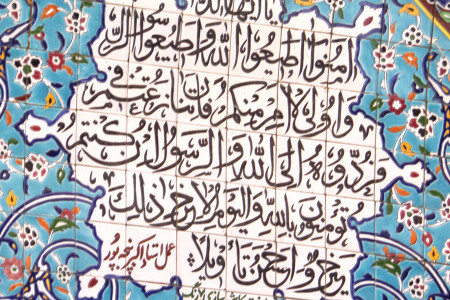 امنوا اطیعوا الله و اطیعوا الرسو
و اولی الامر منکم فان تنازعتم فی
ردوه الی الله و الرسول ان کنتم
تؤمنون بالله و الیوم الاخر ذلك
خیر و احسن تأویلاً
عمل استاد اکبر